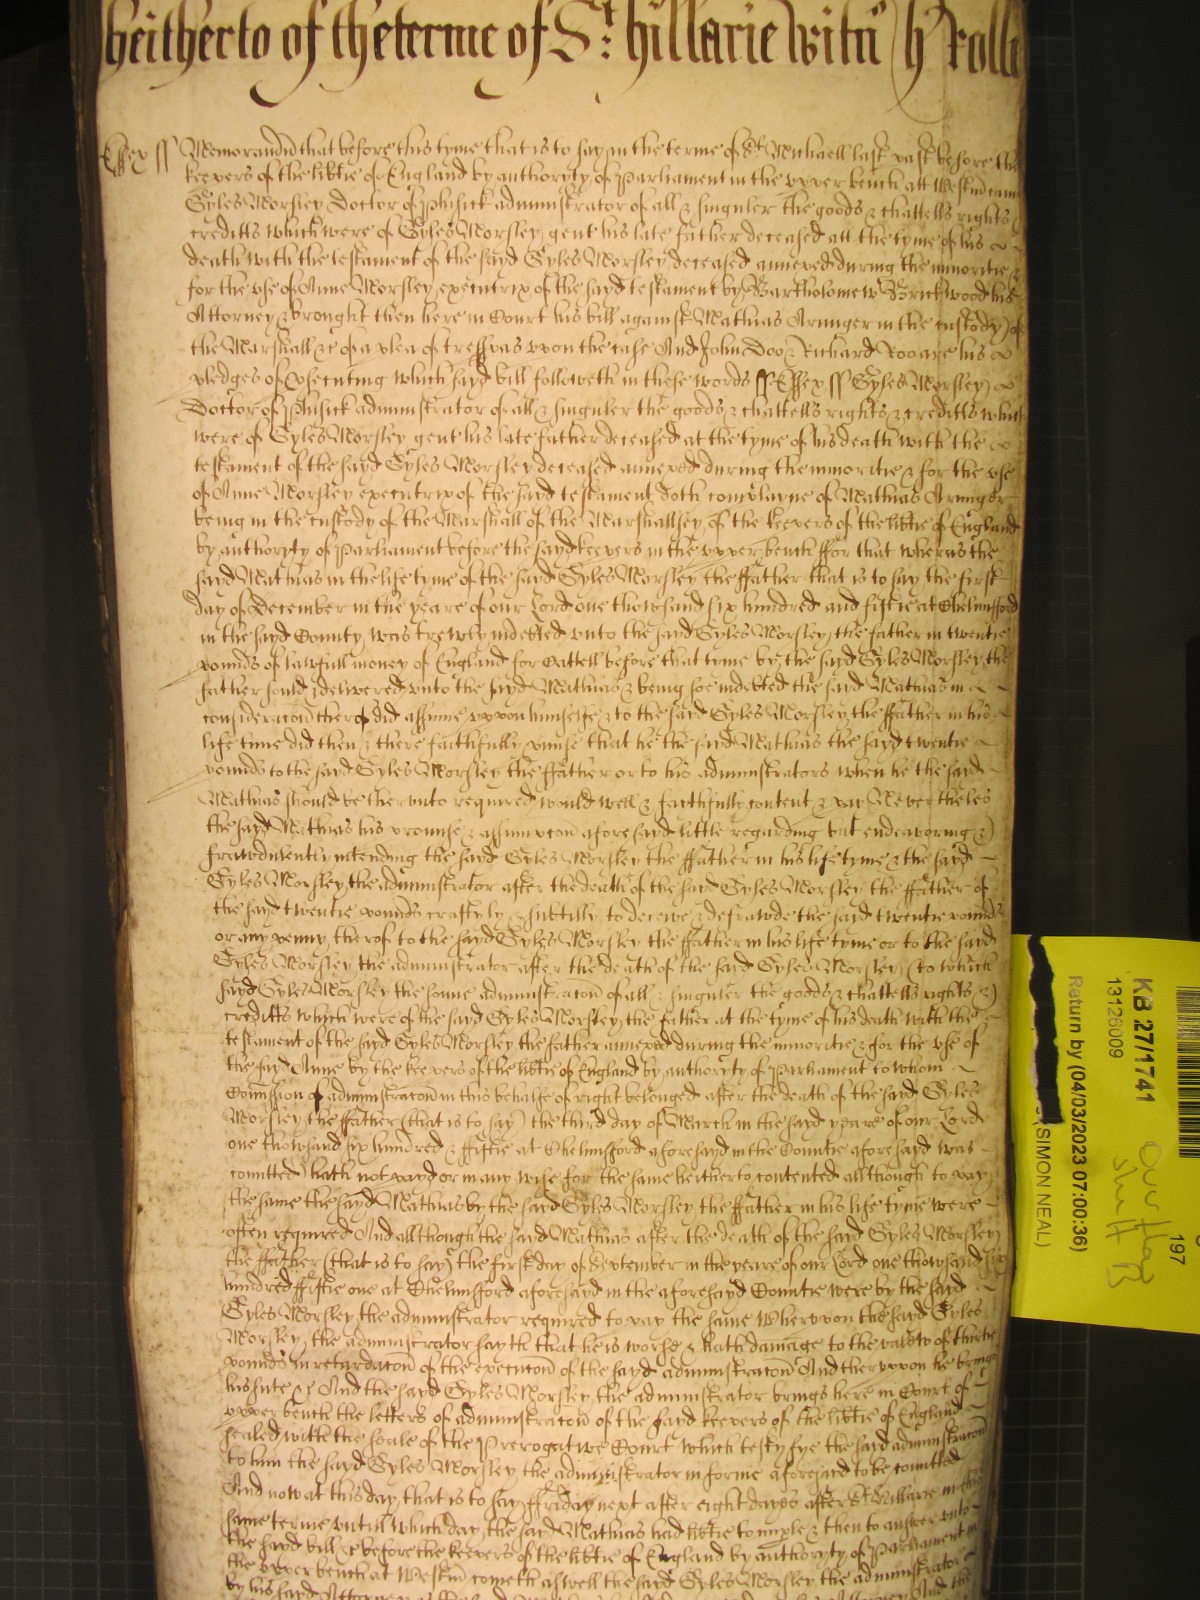 heitherto of the terme of St: hillarie Witn h Rolle
Essex ss Memorand that before this tyme that is to say in the terme of St Michaell last past before the
keepers of the libtie of England by authoryty of Parliament in the upper bench att Westm came
Gyles Morsley Doctor of Phisick administrator of all & singuler the goods & chattells rights &
creditts which were of Gyles Morsley gent his late father deceased att the tyme of his
death with the testament of the sayd Gyles Morsley deceased annexed during the minoritie &
for the use of Anne Morsley executrix of the sayd testament by Bartholomew Brickwood his
Attorney & brought then here in Court his bill against Mathias Aringer in the custody of
the Marshall &c of a plea of trespas upon the case And John Doo & Richard Roo are his
pledges of psecuting which sayd bill followeth in these words ss Essex ss Gyles Morsley
Doctor of Phisick administrator of all & singuler the goods & chattells rights & creditts which
were of Gyles Morsley gent his late father deceased at the tyme of his death with the
testament of the sayd Gyles Morsley deceased annexed during the minoritie & for the use
of Anne Morsley executrix of the sayd testament doth complayne of Mathias Aringer
being in the custody of the Marshall of the Marshallsey of the keepers of the libtie of England
by authoryty of Parliament before the sayd keepers in the upper bench ffor that wheras the
sayd Mathias in the life tyme of the sayd Gyles Morsley the ffather that is to say the first
day of December in the yeare of our Lord one thowsand six hundred and fiftie at Chelmsford
in the sayd County was trewly indetted unto the sayd Gyles Morsley the father in twentie
pounds of lawfull money of England for Cattell before that tyme by the sayd Gyles Morsley the
father sould & delivered unto the sayd Mathias & being soe indetted the sayd Mathias in
consideracon therof did assume uppon himselfe & to the sayd Gyles Morsley the ffather in his
life time did then & there faithfully pmise that he the sayd Mathias the sayd twentie
pounds to the sayd Gyles Morsley the ffather or to his administrators when he the sayd
Mathias should be therunto required would well & faithfully content & pay Nevertheles
the sayd Mathias his promise & assumpcon aforesayd little regarding but endeavoring &
frawdulently intending the sayd Gyles Morsley the ffather in his life tyme & the sayd
Gyles Morsley the administrator after the death of the sayd Gyles Morsley the ffather of
the sayd twentie pounds craftyly & subtilly to deceive & defrawde the said twentie pounds
or any penny therof to the sayd Gyles Morsley the ffather in his life tyme or to the sayd
Gyles Morsley the administrator after the death of the sayd Gyles Morsley (to which
sayd Gyles Morsley the sonne administracon of all & singuler the goods & chattells rights &
creditts which were of the sayd Gyles Morsley the father at the tyme of his death with the
testament of the sayd Gyles Morsley the father annexed during the minoritie & for the use of
the sayd Anne by the keepers of the libtie of England by authority of Parliament to whom
Comission of administracon in this behalfe of right belonged after the death of the said Gyles
Morsley the ffather (that is to say) the third day of March in the sayd yeare of our Lord
one thowsand six hundred & fiftie at Chelmsford aforesayd in the Countie aforesayd was
comitted) hath not payd or in any wise for the same heitherto contented allthough to pay
the same the sayd Mathias by the sayd Gyles Morsley the ffather in his life tyme were
often required And allthough the said Mathias after the death of the sayd Gyles Morsley
the ffather (that is to say) the first day of September in the yeare of our Lord one thowsand six
hundred fiftie one at Chelmsford aforesayd in the aforesayd Countie were by the sayd
Gyles Morsley the administrator required to pay the same Wherupon the sayd Gyles
Morsley the administrator sayth that he is worse & hath damage to the valew of thirtie
pounds in retardacon of the execucon of the sayd administracon And therupon he brings
his sute &c And the sayd Gyles Morsley the administrator brings here in Court of
upper bench the letters of administracon of the sayd keepers of the libtie of England
sealed with the seale of the Prerogative Court which testyfye the sayd administracon
to him the sayd Gyles Morsley the administrator in forme aforesayd to be comitted
And now at this day that is to say ffriday next after eight dayes after St Hillarie in this
same terme untill which day the sayd Mathias had libtie to imple & then to answer unto
the sayd bill &c before the keepers of the libtie of England by authoryty of Parliament in
the upper bench at Westm cometh aswell the sayd Gyles Morsley the administrator
by his sayd Attorney as And the
KB 27/1741
13126009
Return by (04/03/2023 07:00:36)
(SIMON NEAL)
197